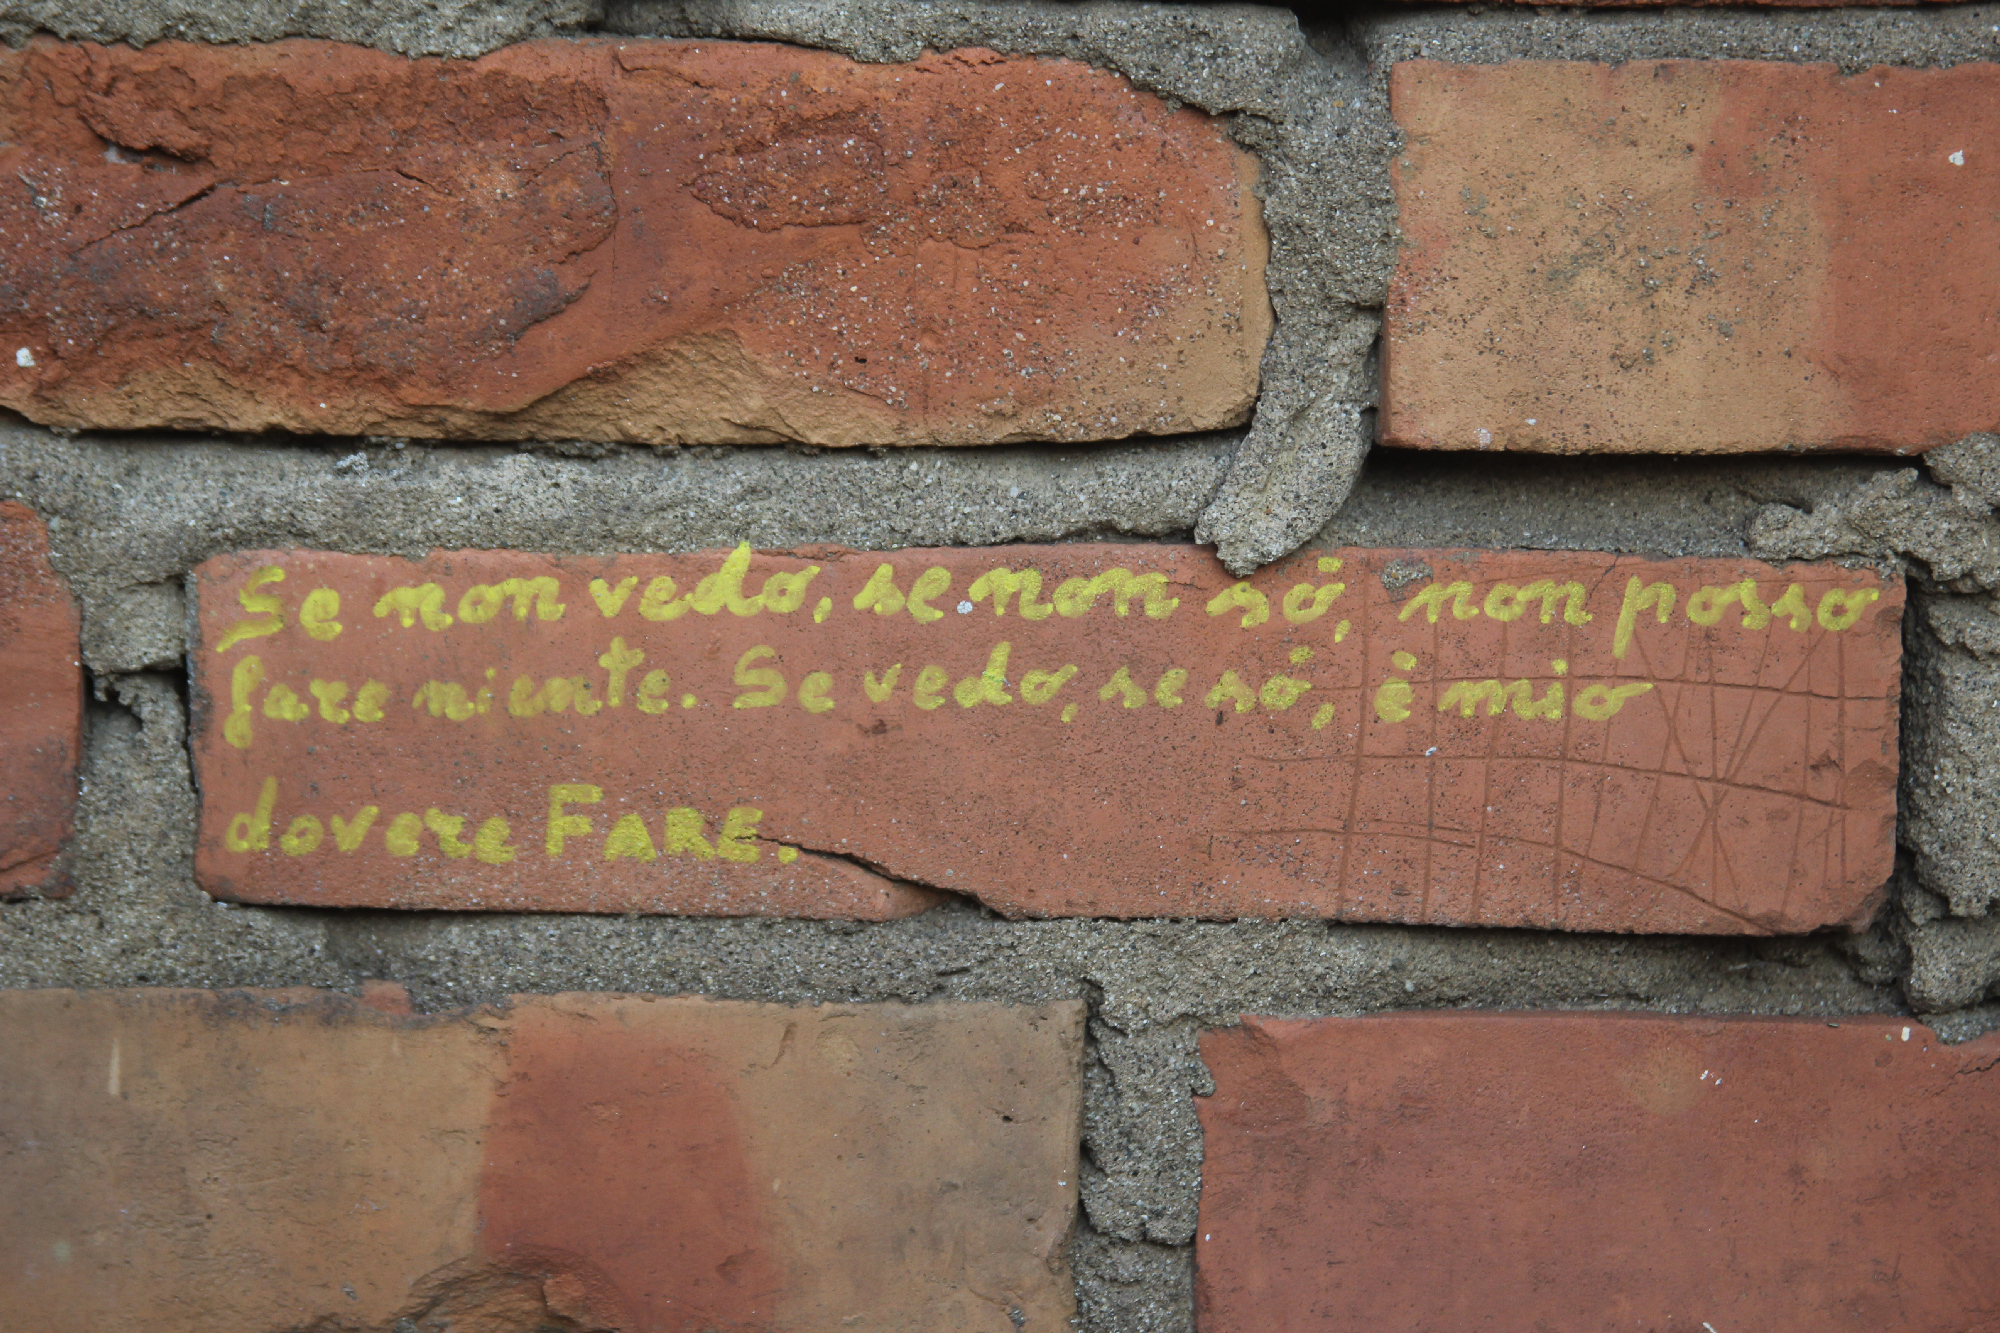 Se non vedo, se non sò, non posso
fare niente. Se vedo, se sò, è mio
dovere FARE.